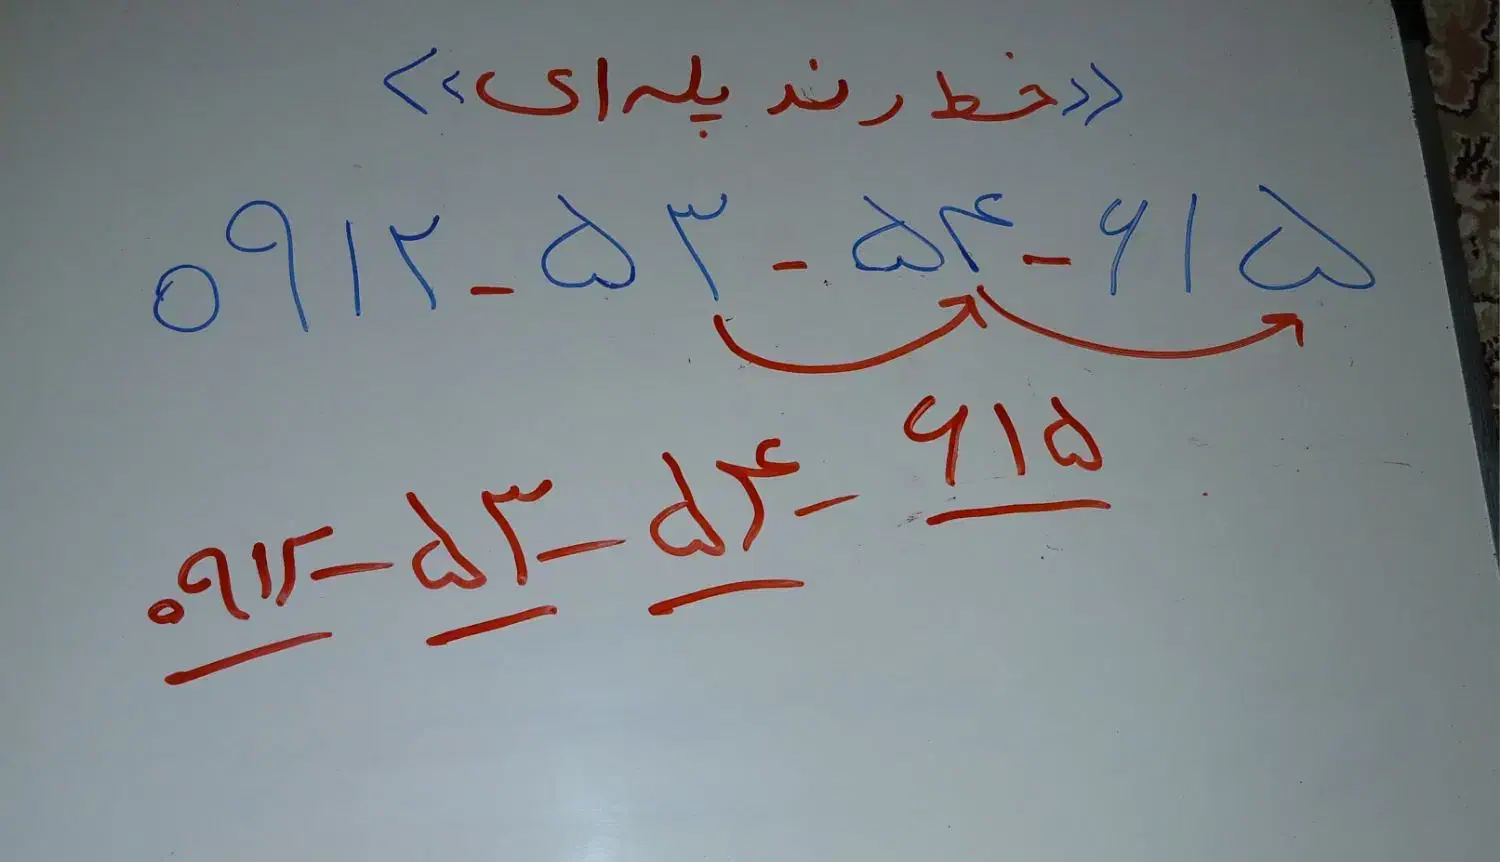 «خط رند پله ای»
۰۹۱۲-۵۳-۵۴-۶۱۵
۰۹۱۲-۵۳-۵۴-۶۱۵